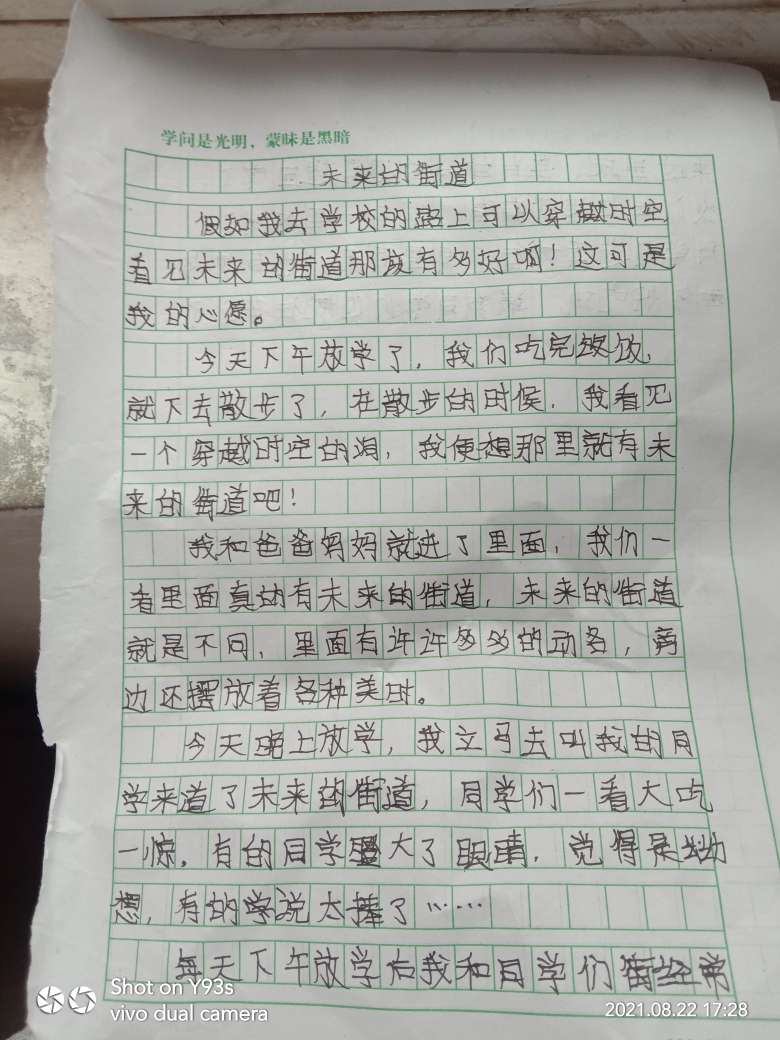 学问是光明，蒙昧是黑暗
未来的街道
假如我去学校的路上可以穿越时空
看见未来的街道那该有多好啊！这可是
我的心愿。
今天下午放学了，我们吃完饭，
就下去散步了，在散步的时候，我看见
一个穿越时空的洞，我便想那里就有未
来的街道吧！
我和爸爸妈妈就进了里面，我们一
看里面真的有未来的街道，未来的街道
就是不同，里面有许许多多的动名，旁
边还摆放着各种美时。
今天晚上放学，我立马去叫我的同
学来道了未来的街道，同学们一看大吃
一惊，有的同学大了眼睛，觉得是
想，有的学说太棒了……
每天下午放学右我和同学们街经常
Shot on Y93s
vivo dual camera
2021.08.22 17:28